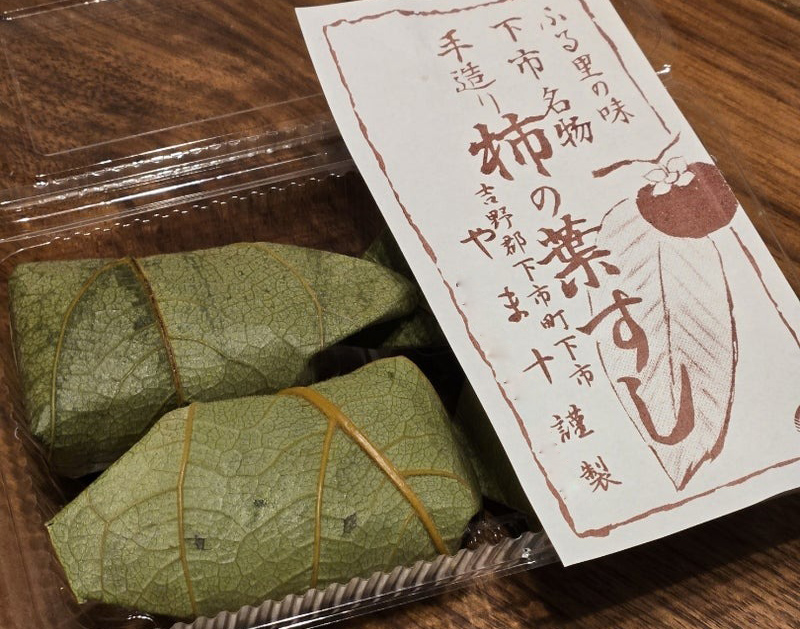 ふる里の味
下市名物
手造り
柿の葉すし
吉野郡下市町下市
やま十
謹製